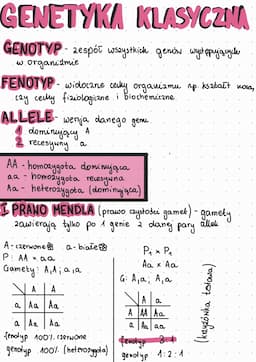 GENETYKA KLASYCZNA
GENOTYP - zespół wszystkich genów występujących
w organizmie
FENOTYP - widoczne cechy organizmu np. kształt nosa,
czy cechy fizjologiczne i biochemiczne
ALLELE - wersja danego genu
1 dominujący A
2 recesywny a
AA - homozygota dominująca
aa - homozygota recesywna
Aa - heterozygota (dominująca)
I PRAWO MENDLA (prawo czystości gamet) - gamety
zawierają tylko po 1 genie z danej pary alleli
A - czerwone a - białe
P: AA x aa
Gamety: A, A; a, a
A A
a Aa Aa
a Aa Aa
fenotyp 100% czerwone
genotyp 100% (heterozygota)
P₁ x P₁
Aa x Aa
G: A, a; A, a
A a
A AA Aa
a Aa aa
fenotyp 3:1
genotyp 1:2:1
(krzyżówka testowa)